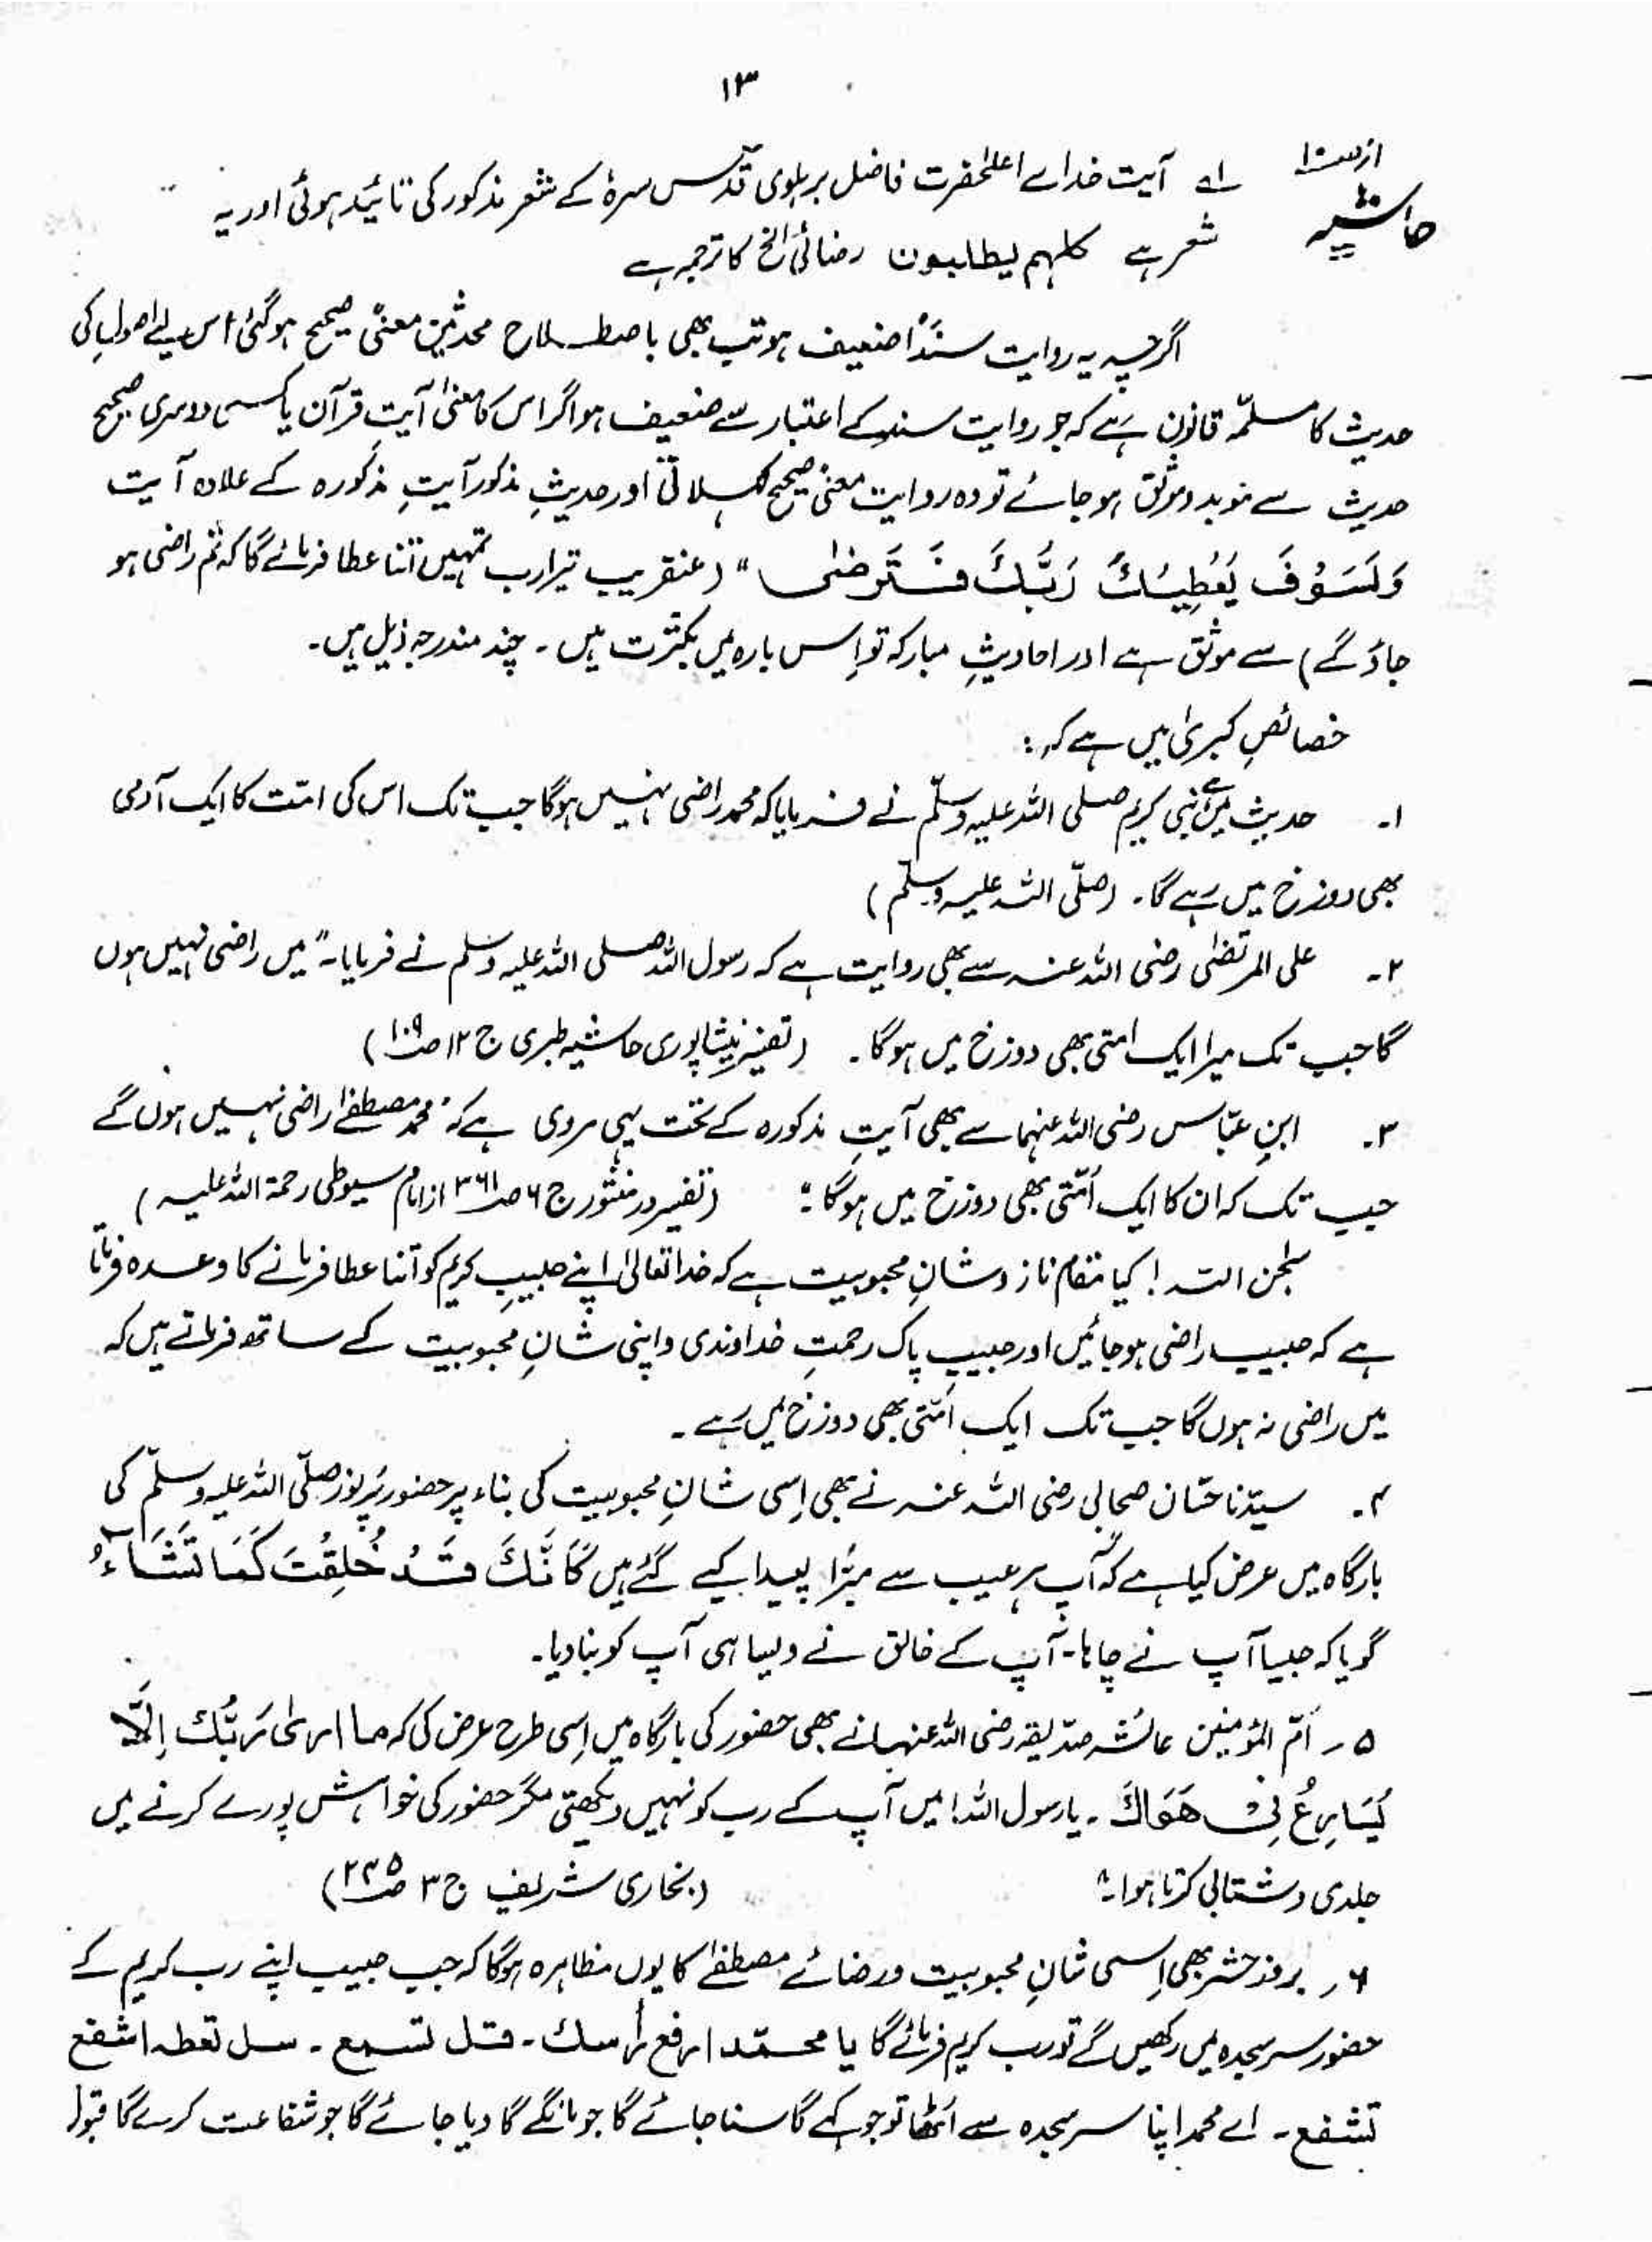 ۱۳
حاشیہ از صـ۱۰ لے آیت خدا سے اعلٰحضرت فاضل بریلوی قدّس سرہٗ کے شعر مذکور کی تائید ہوئی اور یہ
شعر ہے کلہم یطلبون رضائی الخ کا ترجمہ ہے
اگرچہ یہ روایت سنداً ضعیف ہو تب بھی باصطلاح محدثین معنًی صحیح ہوگئی اس لیے اصولِ
حدیث کا مسلمّہ قانون ہے کہ جو روایت سند کے اعتبار سے ضعیف ہو اگر اس کا معنیٰ آیتِ قرآن یا کسی دوسری صحیح
حدیث سے موید و موثق ہو جائے تو وہ روایت معنًی صحیح کہلاتی اور حدیثِ مذکور آیتِ مذکورہ کے علاوہ آیت
وَلَسَوْفَ یُعْطِیْکَ رَبُّکَ فَتَرْضٰی " (عنقریب تیرا رب تمہیں اتنا عطا فرمائے گا کہ تم راضی ہو
جاؤ گے) سے موثق ہے اور احادیثِ مبارکہ تو اِس بارہ میں بکثرت ہیں ۔ چند مندرجہ ذیل ہیں ۔
خصائصِ کبریٰ میں ہے کہ :
۱۔ حدیث میں ہے نبی کریم صلی اللہ علیہ وسلّم نے فرمایا کہ محمد راضی نہیں ہوگا جب تک اس کی امّت کا ایک آدمی
بھی دوزخ میں رہے گا ۔ (صلّی اللہ علیہ وسلّم)
۲۔ علی المرتضٰی رضی اللہ عنہ سے بھی روایت ہے کہ رسول اللہ صلی اللہ علیہ وسلم نے فرمایا ۔ " میں راضی نہیں ہوں
گا جب تک میرا ایک امتی بھی دوزخ میں ہوگا ۔ (تفسیر نیشاپوری حاشیہ طبری ج ۱۲ صـ۱۰۹)
۳۔ ابنِ عبّاس رضی اللہ عنہما سے بھی آیتِ مذکورہ کے تحت یہی مروی ہے کہ " محمد مصطفےٰ راضی نہیں ہوں گے
جب تک کہ ان کا ایک اُمّتی بھی دوزخ میں ہوگا " (تفسیر درمنثور ج ۶ صـ۳۶۱ از امام سیوطی رحمۃ اللہ علیہ)
سبحٰن اللہ ! کیا مقام ناز و شانِ محبوبیت ہے کہ خدا تعالیٰ اپنے حبیبِ کریم کو اتنا عطا فرمانے کا وعدہ فرماتا
ہے کہ حبیب راضی ہو جائیں اور حبیبِ پاک رحمتِ خداوندی و اپنی شانِ محبوبیت کے ساتھ فرماتے ہیں کہ
میں راضی نہ ہوں گا جب تک ایک اُمّتی بھی دوزخ میں رہے ۔
۴۔ سیّدنا حسّان صحابی رضی اللہ عنہ نے بھی اِسی شانِ محبوبیت کی بناء پر حضور پُرنور صلّی اللہ علیہ وسلّم کی
بارگاہ میں عرض کیا ہے کہ آپ ہر عیب سے مبرّا پیدا کیے گئے ہیں کَاَنَّکَ قَدْ خُلِقْتَ کَمَا تَشَآءُ
گویا کہ جیسا آپ نے چاہا ۔ آپ کے خالق نے ویسا ہی آپ کو بنا دیا ۔
۵۔ اُمّ المؤمنین عائشہ صدّیقہ رضی اللہ عنہا نے بھی حضور کی بارگاہ میں اِسی طرح عرض کی کہ ما اریٰ رَبَّک اِلَّا
یُسَارِعُ فِیْ ھَوَاکَ ۔ یارسول اللہ ! میں آپ کے رب کو نہیں دیکھتی مگر حضور کی خواہش پورے کرنے میں
جلدی و شتابی کرتا ہوا " (بخاری شریف ج ۳ صـ۲۳۵)
۶۔ بروزِ حشر بھی اِسی شانِ محبوبیت و رضائے مصطفےٰ کا یوں مظاہرہ ہوگا کہ جب حبیب اپنے رب کریم کے
حضور سر سجدہ میں رکھیں گے تو رب کریم فرمائے گا یا محمّد ارفع رأسک ۔ قل تسمع ۔ سل تعطہ اشفع
تشفع ۔ اے محمد اپنا سر سجدہ سے اُٹھا تو جو کہے گا سنا جائے گا جو مانگے گا دیا جائے گا جو شفاعت کرے گا قبول